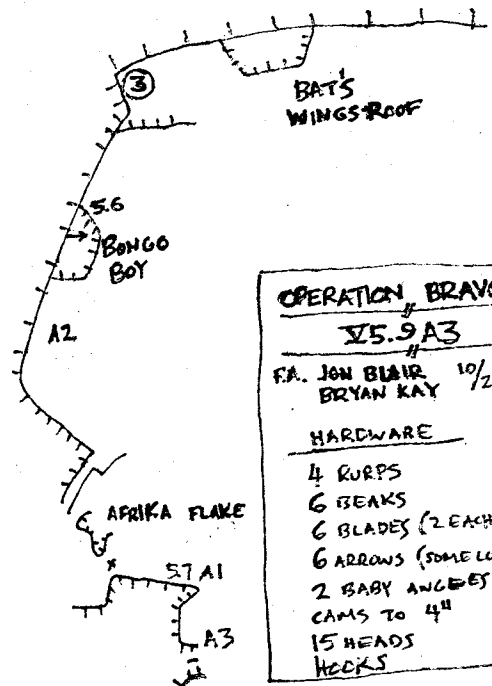 3
BAT'S
WINGS ROOF
5.6
BONGO
BOY
A2
AFRIKA FLAKE
x
5.7 A1
A3
OPERATION BRAVO
V 5.9 A3
F.A. JON BLAIR 10/2
BRYAN KAY
HARDWARE
4 RURPS
6 BEAKS
6 BLADES (2 EACH
6 ARROWS (SOME
2 BABY ANGLES
CAMS TO 4"
15 HEADS
HOOKS